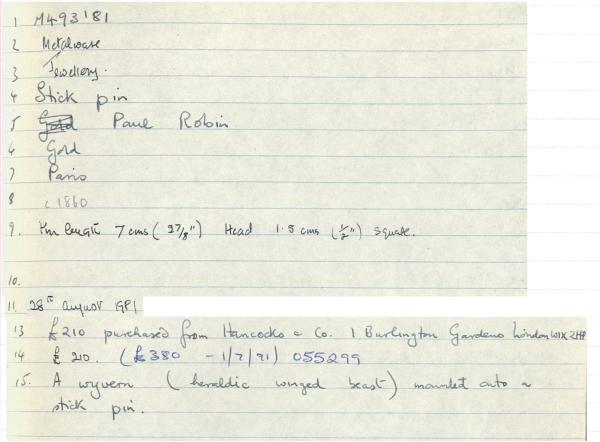 1 M493'81
2 Metalware
3 Jewellery.
4 Stick pin
5 Gold Paul Robin
6 Gold
7 Paris
8 c 1860
9. Pin length 7 cms ( 2 7/8") Head 1.5 cms (1/2") square.
10.
11. 28th August 1981
13 £210 purchased from Hancocks & Co. 1 Burlington Gardens London W1X 2HP
14 £ 210. (£380 - 1/7/91) 055299
15. A wyvern ( heraldic winged beast) mounted onto a
stick pin.